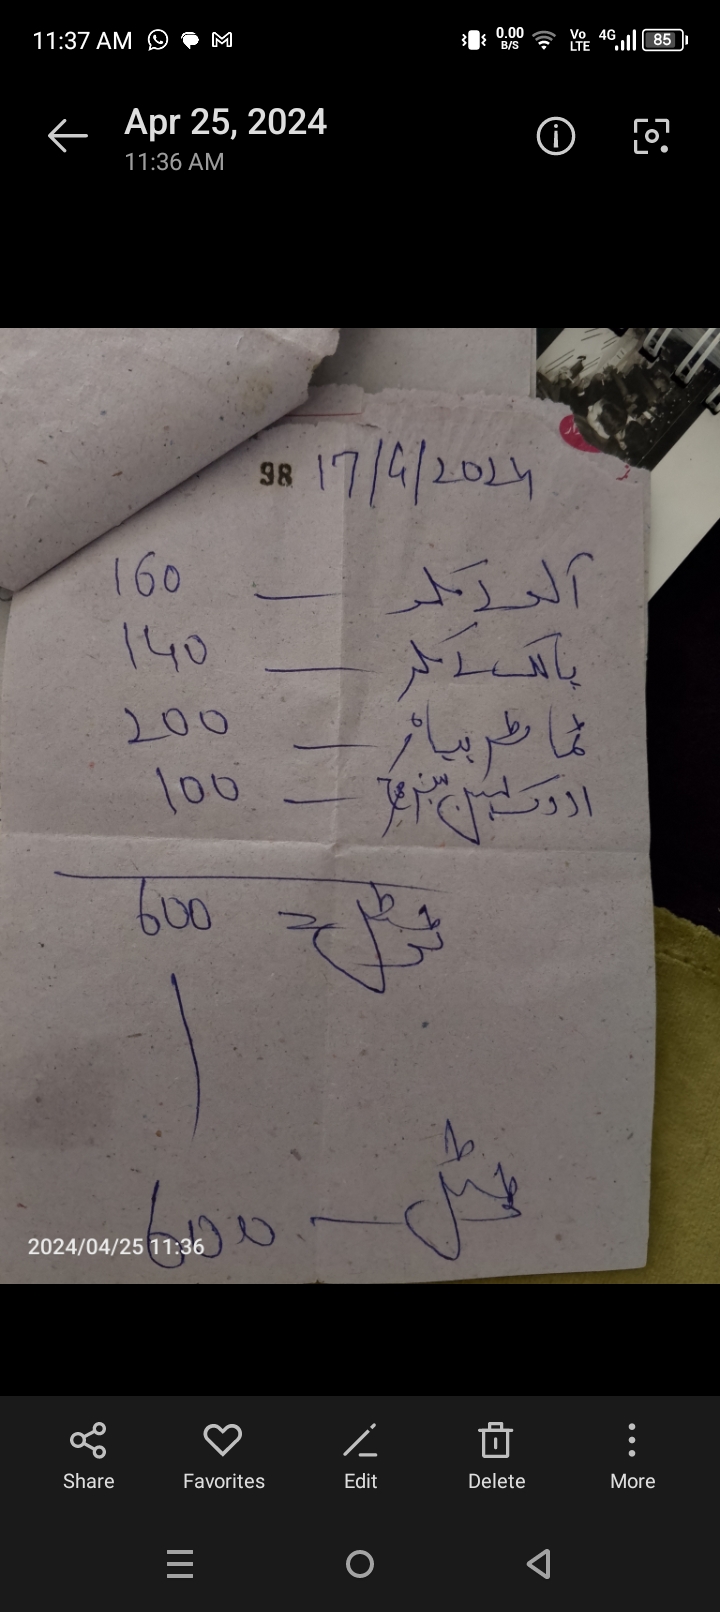 11:37 AM 0.00 B/S Vo LTE 4G 85
Apr 25, 2024
11:36 AM
98 17/4/2024
آلو 2 کلو — 160
پالک 2 کلو — 140
ٹماٹر پیاز — 200
ادرک لہسن سبز مرچ — 100
ٹوٹل = 600
ٹوٹل — 600
2024/04/25 11:36
Share Favorites Edit Delete More